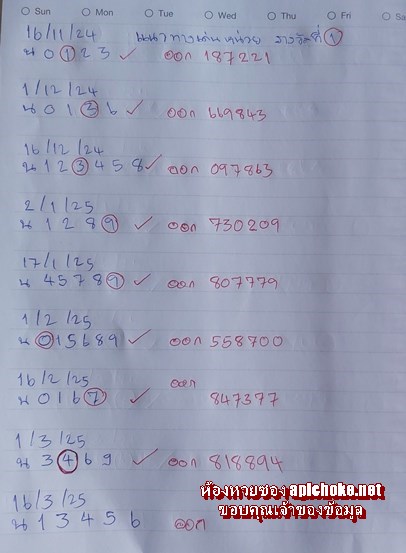 Sun Mon Tue Wed Thu Fri Sa
16/11/24 แนวทางเด่นหน่วย รางวัลที่ 1
น 0 1 2 3 ✓ ออก 187221
1/12/24
น 0 1 3 6 ✓ ออก 669843
16/12/24
น 1 2 3 4 5 8 ✓ ออก 097863
2/1/25
น 1 2 8 9 ✓ ออก 730209
17/1/25
น 4 5 7 8 9 ✓ ออก 807779
1/2/25
น 0 1 5 6 8 9 ✓ ออก 558700
16/2/25 ออก
น 0 1 6 7 ✓ 847377
1/3/25
น 3 4 6 9 ✓ ออก 818894
16/3/25
น 1 3 4 5 6 ออก
ห้องหวยซอง apichoke.net
ขอบคุณเจ้าของข้อมูล